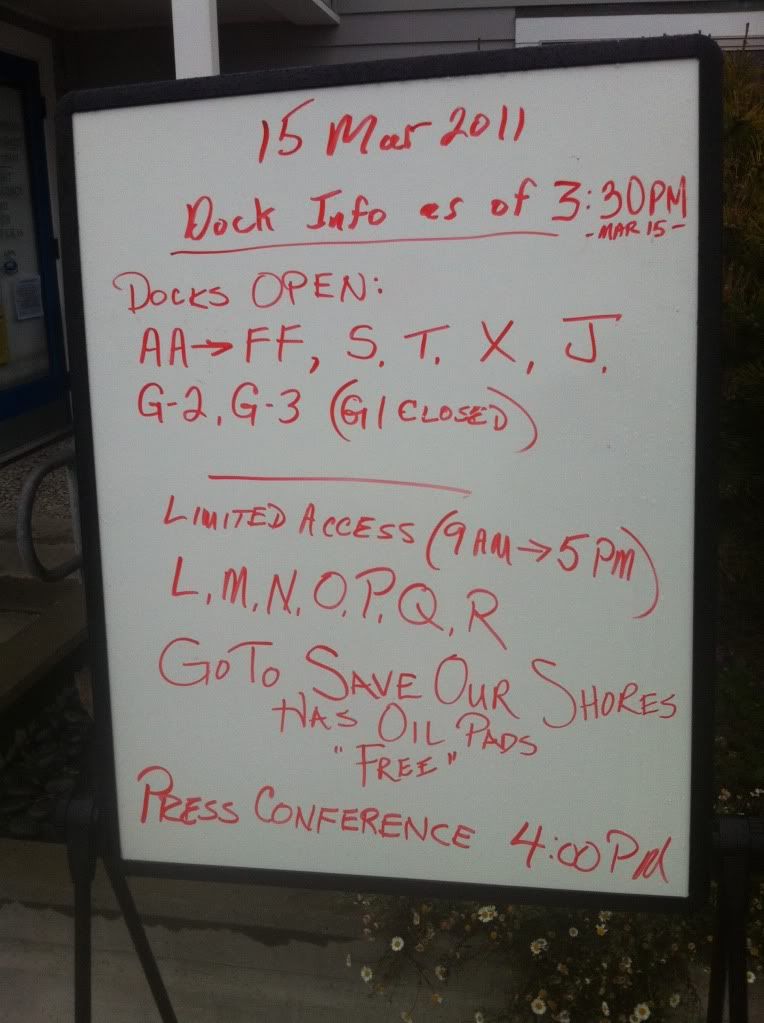 15 Mar 2011
Dock Info as of 3:30PM
- MAR 15 -
DOCKS OPEN:
AA→FF, S. T. X, J.
G-2, G-3 (G1 CLOSED)
LIMITED ACCESS (9AM→5PM)
L, M, N, O, P, Q, R
GO TO SAVE OUR SHORES
HAS OIL PADS
"FREE"
PRESS CONFERENCE 4:00PM